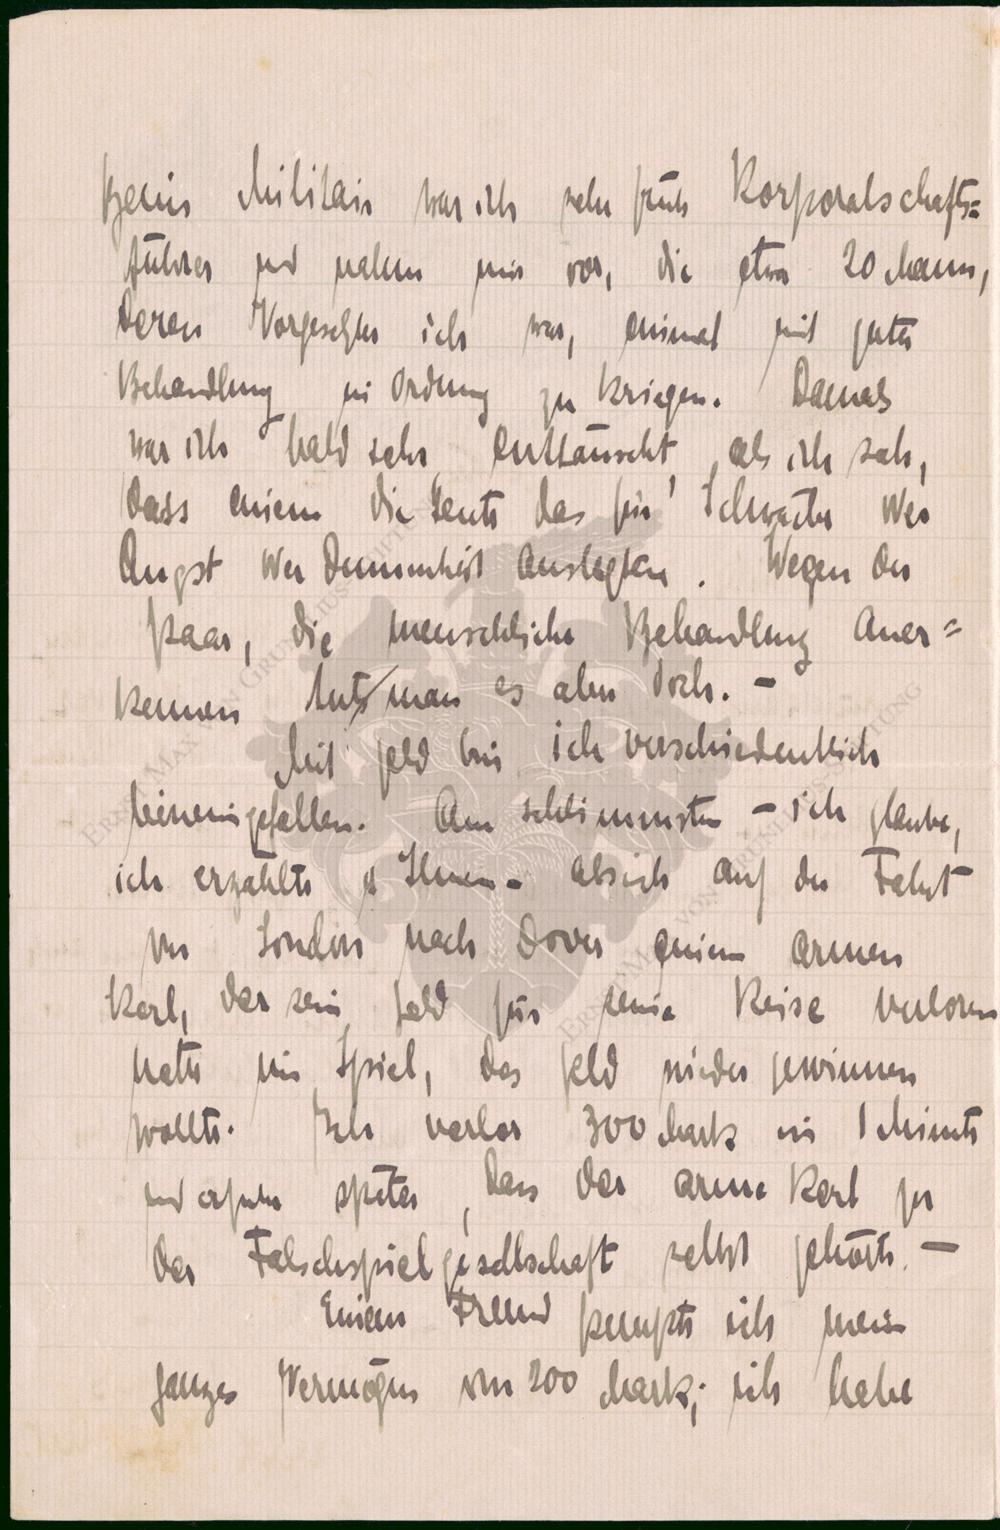 Beim Militair war ich sehr früh Korporalschafts=
führer und nahm mir vor, die etwa 20 Mann,
deren Vorgesetzter ich war, einmal mit guter
Behandlung in Ordnung zu kriegen. Damals
war ich bald sehr enttäuscht, als ich sah,
dass einem die Leute das für Schwäche oder
Angst oder Dummheit auslegten. Wegen der
paar, die menschliche Behandlung aner=
kennen tut man es aber doch. –
Mit Geld bin ich verschiedentlich
hineingefallen. Am schlimmsten – ich glaube,
ich erzählte es Ihnen – als ich auf der Fahrt
von London nach Dover einem armen
Kerl, der sein Geld für seine Reise verloren
hatte im Spiel, das Geld wieder gewinnen
wollte. Ich verlor 300 Mark in 1 Minute
und erfuhr später, dass der arme Kerl zu
der Falschspielgesellschaft selbst gehörte. –
Einem Freund pumpte ich mein
ganzes Vermögen von 200 Mark; ich habe
ERNST MAX VON GRUNELIUS-STIFTUNG
ERNST MAX VON GRUNELIUS-STIFTUNG